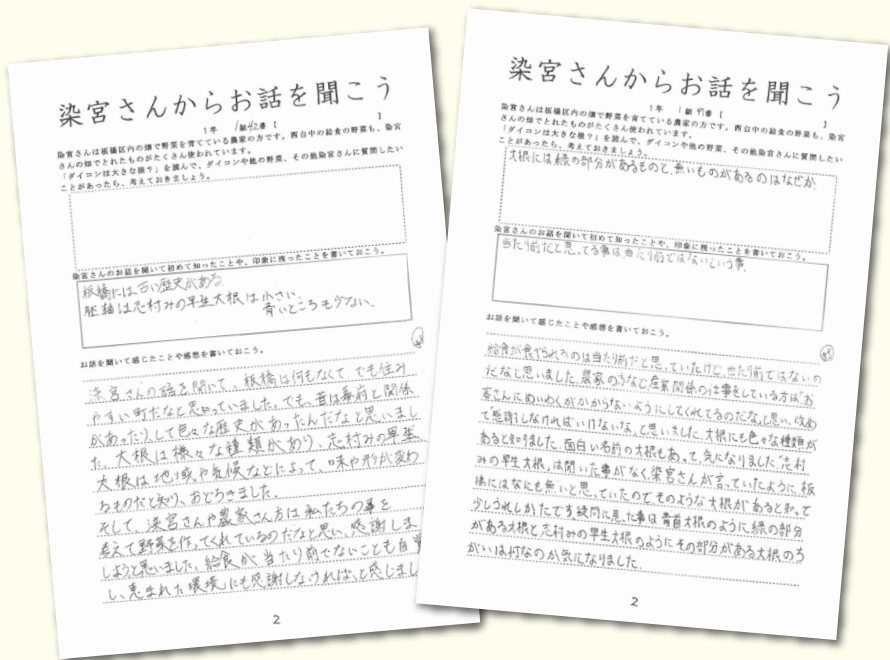 染宮さんからお話を聞こう
1年 1組42番【 】
染宮さんは板橋区内の畑で野菜を育てている農家の方です。西台中の給食の野菜も、染宮
さんの畑でとれたものがたくさん使われています。
「ダイコンは大きな根？」を読んで、ダイコンや他の野菜、その他染宮さんに質問したい
ことがあったら、考えておきましょう。
染宮さんのお話を聞いて初めて知ったことや、印象に残ったことを書いておこう。
板橋には古い歴史がある
胚軸は志村みの早生大根は小さい
青いところも少ない、
お話を聞いて感じたことや感想を書いておこう。
染宮さんの話を聞いて、板橋は何もなくて でも住み
やすい町だなと思っていました。でも、昔は幕府と関係
があったりして色々な歴史があったんだなと思いまし
た。大根は様々な種類があり、志村みの早生
大根は地域や気候などによって、味や形が変わ
るものだと知り、おどろきました。
そして、染宮さんや農家さん方は私たちの事を
考えて野菜を作ってくれているのだなと思い、感謝しま
しようと思いました。給食が当たり前でないことも自
し、恵まれた環境にも感謝しなければ、と感じまし
2
染宮さんからお話を聞こう
1年 1組 番【 】
染宮さんは板橋区内の畑で野菜を育てている農家の方です。西台中の給食の野菜も、染宮
さんの畑でとれたものがたくさん使われています。
「ダイコンは大きな根？」を読んで、ダイコンや他の野菜、その他染宮さんに質問したい
ことがあったら、考えておきましょう。
大根には緑の部分があるものと、無いものがあるのはなぜか
染宮さんのお話を聞いて初めて知ったことや、印象に残ったことを書いておこう。
当たり前だと思ってる事は当たり前ではないという事。
お話を聞いて感じたことや感想を書いておこう。
給食が食べられるのは当たり前だと思っていたけど、当たり前ではないの
だなと思いました。農家の方など産業関係の仕事をしている方は「お
客さんにめいわくがかからないようにしてくれてるのだな」と思い、改め
て「感謝しなければいけないな」と思いました。大根にも色々な種類が
あると知りました。面白い名前の大根もあって気になりました。「志村
みの早生大根」は聞いた事がなく染宮さんが言っていたように、板
橋にはなにも無いと思っていたのでそのような大根があると知って
少しうれしかたです疑問に思った事は青首大根のように緑の部分
がある大根と志村みの早生大根のようにその部分がある大根のち
がいは何なのか気になりました。
2